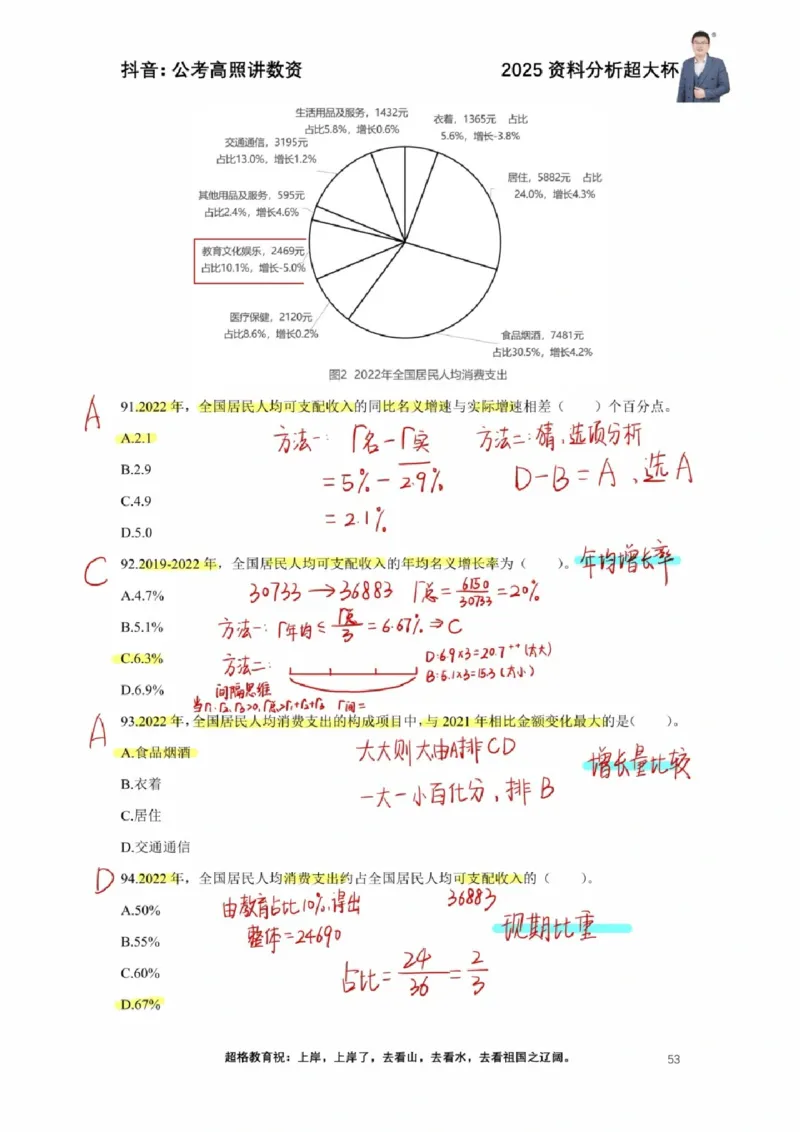 抖音：公考高照讲数资
2025 资料分析超大杯
生活用品及服务，1432元
占比5.8%，增长0.6%
衣着，1365元 占比
5.6%，增长-3.8%
交通通信，3195元
占比13.0%，增长1.2%
居住，5882元 占比
24.0%，增长4.3%
其他用品及服务，595元
占比2.4%，增长4.6%
教育文化娱乐，2469元
占比10.1%，增长-5.0%
医疗保健，2120元
占比8.6%，增长0.2%
食品烟酒，7481元
占比30.5%，增长4.2%
图2 2022年全国居民人均消费支出
A
91.2022 年，全国居民人均可支配收入的同比名义增速与实际增速相差（ ）个百分点。
A.2.1
方法一： r名－r实
方法二：猜，选项分析
B.2.9
=5%－2.9%
D-B=A，选A
C.4.9
=2.1%
D.5.0
C
92.2019-2022 年，全国居民人均可支配收入的年均名义增长率为（ ）。
年均增长率
A.4.7%
30733→36883 r总=6150/30733=20%
B.5.1%
方法一：r年均≤r总/3=6.67%⇒C
C.6.3%
方法二：
D:6.9×3=20.7++(太大)
B:5.1×3=15.3(太小)
D.6.9%
间隔思维
当r1.r2.r3>0,r总>r1+r2+r3 r间=
A
93.2022 年，全国居民人均消费支出的构成项目中，与 2021 年相比金额变化最大的是（ ）。
A.食品烟酒
大大则大，由A排CD
增长量比较
B.衣着
一大一小百化分，排B
C.居住
D.交通通信
D
94.2022 年，全国居民人均消费支出约占全国居民人均可支配收入的（ ）。
A.50%
由教育占比10%，得出
36883
现期比重
B.55%
整体=24690
C.60%
占比=24/36=2/3
D.67%
超格教育祝：上岸，上岸了，去看山，去看水，去看祖国之辽阔。
53